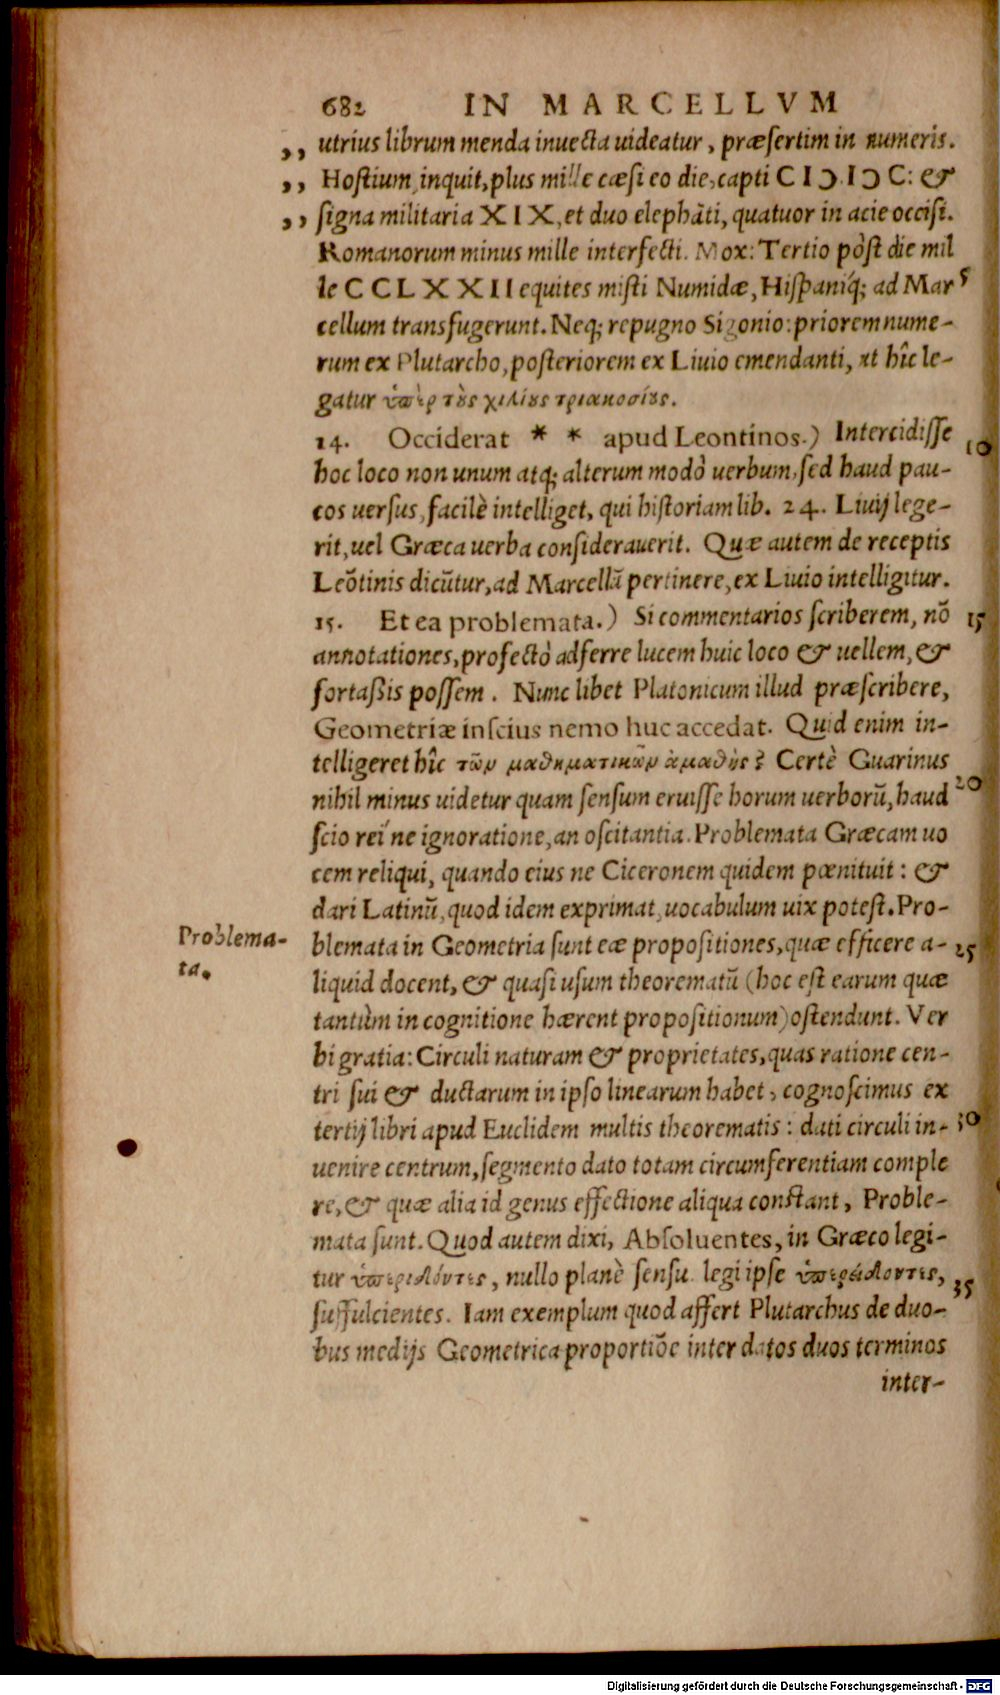 682 IN MARCELLVM
,, utrius librum menda inuecta uideatur, præsertim in numeris.
,, Hostium, inquit, plus mille cæsi eo die, capti C I Ɔ. I Ɔ C: &
,, signa militaria X I X, et duo elephāti, quatuor in acie occisi.
Romanorum minus mille interfecti. Mox: Tertio pòst die mil
le C C L X X I I equites misti Numidæ, Hispaniq́; ad Mar 5
cellum transfugerunt. Neq; repugno Sigonio: priorem nume-
rum ex Plutarcho, posteriorem ex Liuio emendanti, ut hîc le-
gatur ὑπὲρ τοὺς χιλίους τριακοσίους.
14. Occiderat * * apud Leontinos.) Intercidisse 10
hoc loco non unum atq; alterum modò uerbum, sed haud pau-
cos uersus, facilè intelliget, qui historiam lib. 24. Liuij lege-
rit, uel Græca uerba considerauerit. Quæ autem de receptis
Leōtinis dicūtur, ad Marcellū pertinere, ex Liuio intelligitur.
15. Et ea problemata.) Si commentarios scriberem, nō 15
annotationes, profectò adferre lucem huic loco & uellem, &
fortaßis possem. Nunc libet Platonicum illud præscribere,
Geometriæ inscius nemo huc accedat. Quid enim in-
telligeret hîc τῶν μαθηματικῶν ἀμαθής? Certè Guarinus
nihil minus uidetur quam sensum eruisse horum uerborū, haud 20
scio rei ne ignoratione, an oscitantia. Problemata Græcam uo
cem reliqui, quando eius ne Ciceronem quidem pœnituit: &
dari Latinū, quod idem exprimat, uocabulum uix potest. Pro-
Problema-
ta.
blemata in Geometria sunt eæ propositiones, quæ efficere a- 25
liquid docent, & quasi usum theorematū (hoc est earum quæ
tantùm in cognitione hærent propositionum) ostendunt. Ver
bi gratia: Circuli naturam & proprietates, quas ratione cen-
tri sui & ductarum in ipso linearum habet, cognoscimus ex
tertij libri apud Euclidem multis theorematis: dati circuli in- 30
uenire centrum, segmento dato totam circumferentiam comple
re, & quæ alia id genus effectione aliqua constant, Proble-
mata sunt. Quod autem dixi, Absoluentes, in Græco legi-
tur ὑπεριδόντες, nullo planè sensu. legi ipse ὑπερείδοντες, 35
suffulcientes. Iam exemplum quod affert Plutarchus de duo-
bus medijs Geometrica proportiōe inter datos duos terminos
inter-
Digitalisierung gefördert durch die Deutsche Forschungsgemeinschaft - DFG